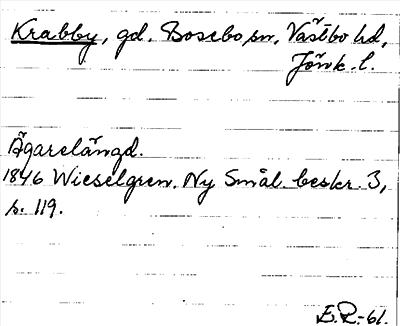 Krabby, gd. Bosebo sn, Västbo hd,
Jönk. l.
Ägarelängd.
1846 Wieselgren. Ny Smål. beskr. 3,
s. 119.
E.R.-61.